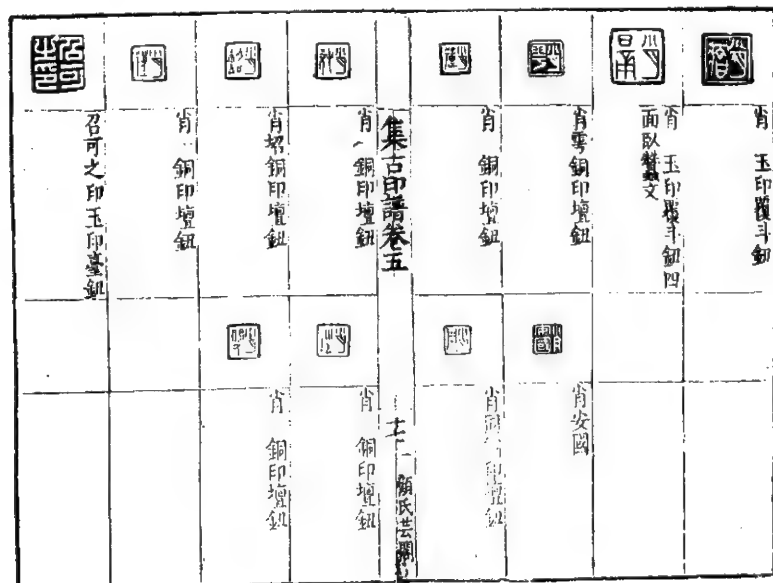 肖 玉印覆斗鈕
肖 玉印覆斗鈕四
面臥蠶文
肖雩銅印壇鈕
肖 銅印壇鈕
肖安國
肖 印壇鈕
集古印譜卷五
顧氏芸閣
肖 銅印壇鈕
肖 銅印壇鈕
肖 銅印壇鈕
肖 銅印壇鈕
肖 銅印壇鈕
召可之印玉印臺鈕